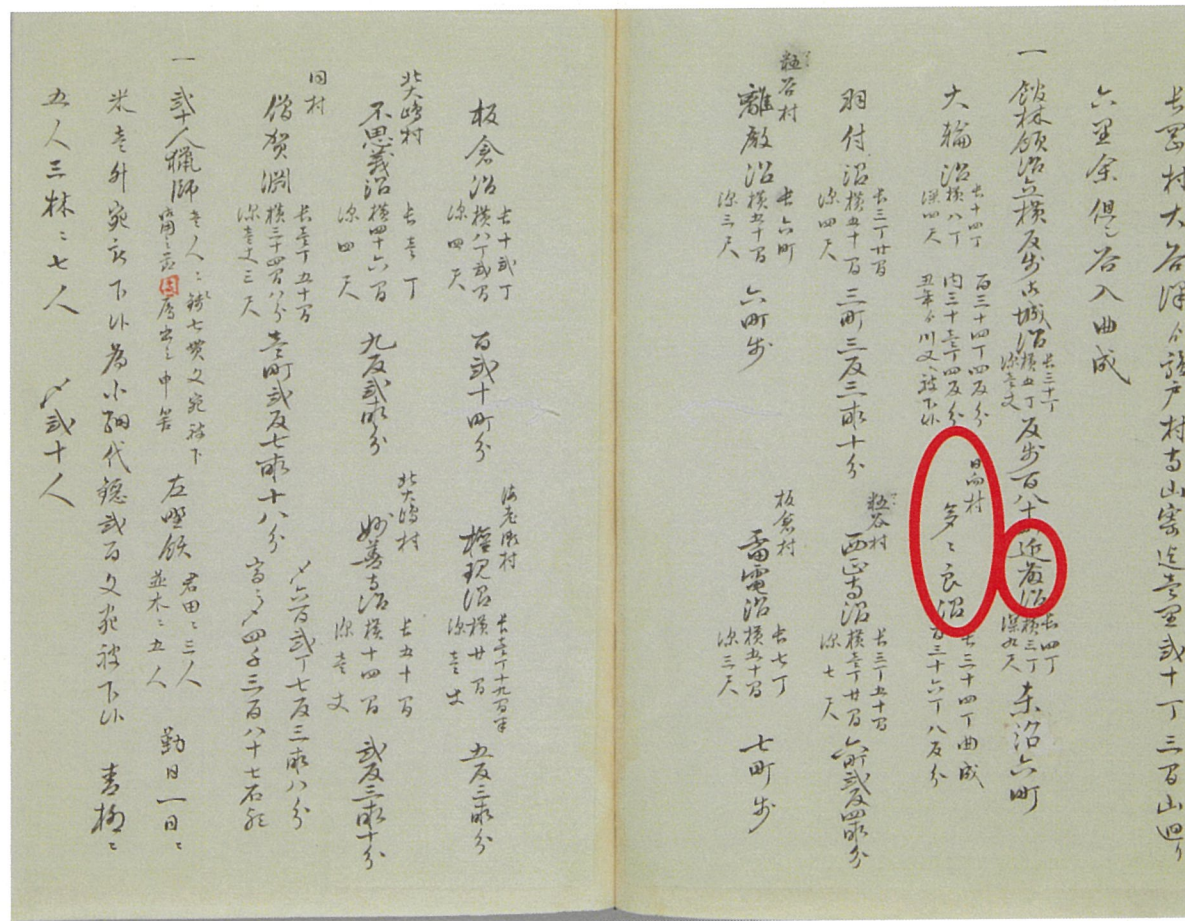 長岡村大谷澤ゟ龍戸村寺山寄迄壱里弐十丁三百山廻り
六里余但シ谷入曲成
一 館林領沼立横反歩古城沼 長三十丁 横五丁 深壱丈 反歩百八十 近藤沼 長四丁 横三丁 深九尺 末沼六町
大輪沼 長十四丁 横八丁 深四尺 百三十四丁四反分 内三十壱丁四反分 丑年ゟ川又へ被下候
日向村 多々良沼 長三十四丁曲成 百三十六丁八反分
羽付沼 長三丁廿間 横五十間 深四尺 三町三反三畝十分
粒谷村 西正寺沼 長三丁五十間 横壱丁廿間 深七尺 六町弐反四畝分
粒谷村 離散沼 長六町 横五十間 深三尺 六町歩
板倉村 雷電沼 長七丁 横五十間 深三尺 七町歩
板倉沼 長十弐丁 横八丁弐間 深四尺 百弐十町分
海老瀬村 権現沼 長壱丁十九間半 横廿間 深壱丈 五反三畝分
北大嶋村 不思義沼 長壱丁 横四十六間 深四尺 九反弐畝分
北大嶋村 妙善寺沼 長五十間 横十四間 深壱丈 弐反三畝十分
同村 僧賀淵 長壱丁五十間 横三十四間八分 深壱丈三尺 壱町弐反七畝十八分
〆六百弐丁七反三畝八分
高〆四千三百八十七石
一 弐十人猟師 壱人ニ銭七貫文宛被下 左野領 君田ニ三人 並木ニ五人 勤日一日ニ
米壱升宛被下候為小網代鐚弐百文宛被下候 青柳ニ
五人三林ニ七人 〆弐十人